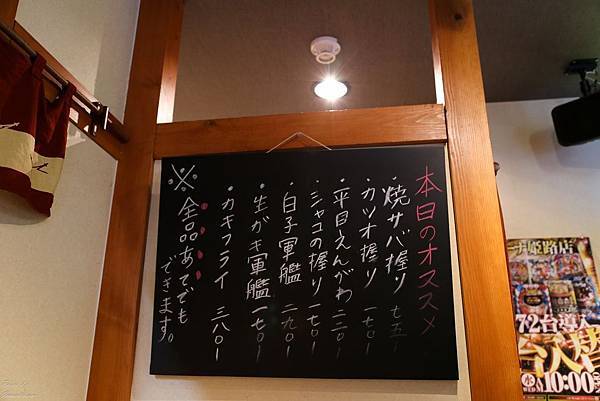 本日のオススメ
・焼サバ握り 七五ー
・カツオ握り 一七〇ー
・平目えんがわ 二二〇ー
・シャコの握り 一七〇ー
・白子軍艦 二九〇ー
・生ガキ軍艦 一七〇ー
・カキフライ 三八〇ー
※全品あてでも
できます。
姫路店
72台導入
10:00